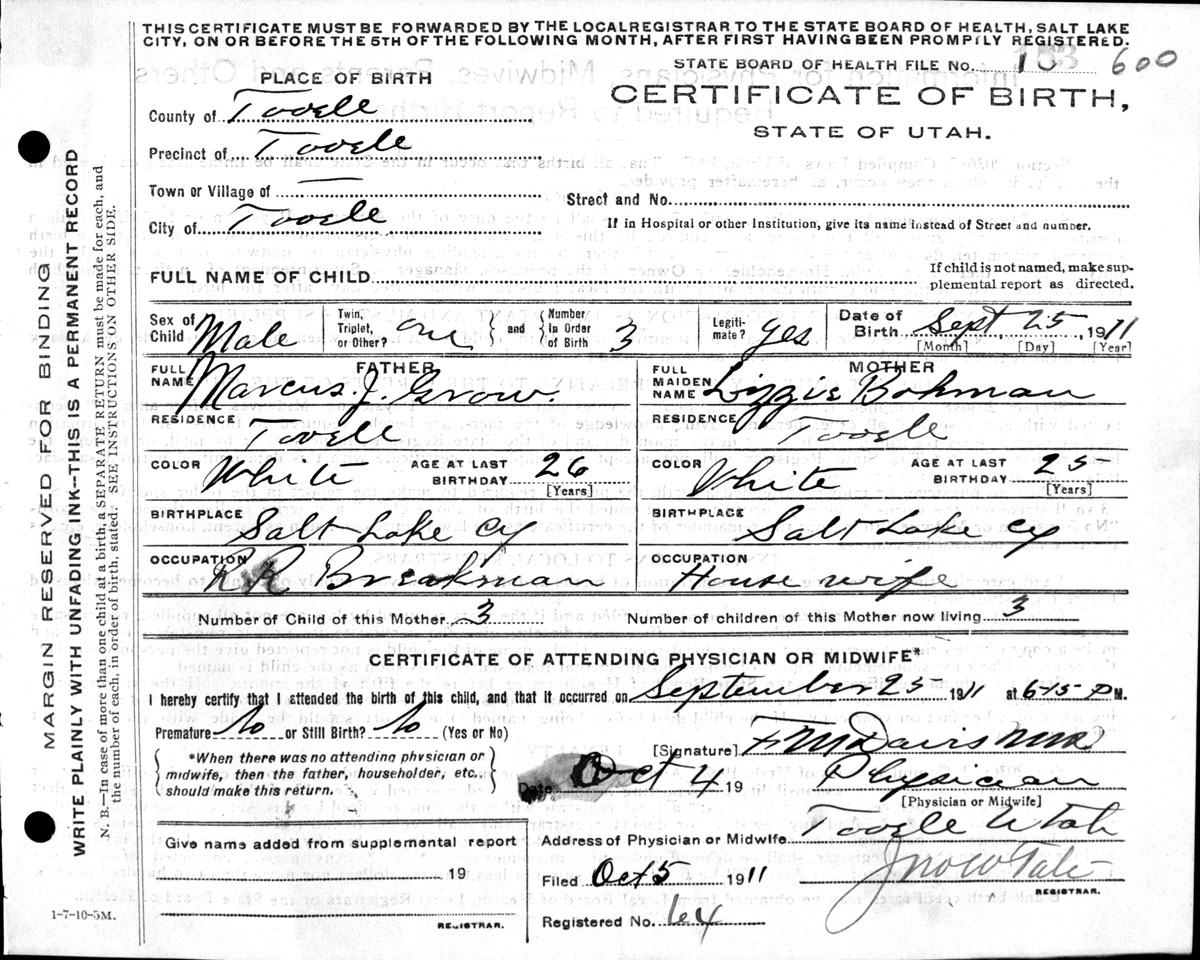 THIS CERTIFICATE MUST BE FORWARDED BY THE LOCAL REGISTRAR TO THE STATE BOARD OF HEALTH, SALT LAKE
CITY, ON OR BEFORE THE 5TH OF THE FOLLOWING MONTH, AFTER FIRST HAVING BEEN PROMPTLY REGISTERED.
STATE BOARD OF HEALTH FILE NO. 600
PLACE OF BIRTH
CERTIFICATE OF BIRTH,
STATE OF UTAH.
County of Tooele
Precinct of Tooele
Town or Village of
Street and No.
City of Tooele
If in Hospital or other Institution, give its name instead of Street and number.
FULL NAME OF CHILD
If child is not named, make sup-
plemental report as directed.
Sex of Child Male Twin, Triplet, or Other? one and Number In Order of Birth 3 Legiti- mate? yes Date of Birth Sept 25, 1911
[Month] [Day] [Year]
FATHER MOTHER
FULL NAME Marcus. J. Grow. FULL MAIDEN NAME Lizzie Bohman
RESIDENCE Tooele RESIDENCE Tooele
COLOR White AGE AT LAST BIRTHDAY 26 [Years] COLOR White AGE AT LAST BIRTHDAY 25 [Years]
BIRTHPLACE Salt Lake Cy BIRTHPLACE Salt Lake Cy
OCCUPATION RR Breakman OCCUPATION House wife
Number of Child of this Mother 3 Number of children of this Mother now living 3
CERTIFICATE OF ATTENDING PHYSICIAN OR MIDWIFE*
I hereby certify that I attended the birth of this child, and that it occurred on September 25 1911 at 6-15 P M.
Premature No or Still Birth? No (Yes or No)
*When there was no attending physician or
midwife, then the father, householder, etc.,
should make this return.
[Signature] F M Davis MD
Date Oct 4 19 Physician
[Physician or Midwife]
Give name added from supplemental report
Address of Physician or Midwife Tooele Utah
19
Filed Oct 5 1911 Jno W Tate
REGISTRAR.
Registered No. 64
REGISTRAR.
1-7-10-5M.
MARGIN RESERVED FOR BINDING
WRITE PLAINLY WITH UNFADING INK—THIS IS A PERMANENT RECORD
N. B.—In case of more than one child at a birth, a SEPARATE RETURN must be made for each, and
the number of each, in order of birth, stated. SEE INSTRUCTIONS ON OTHER SIDE.